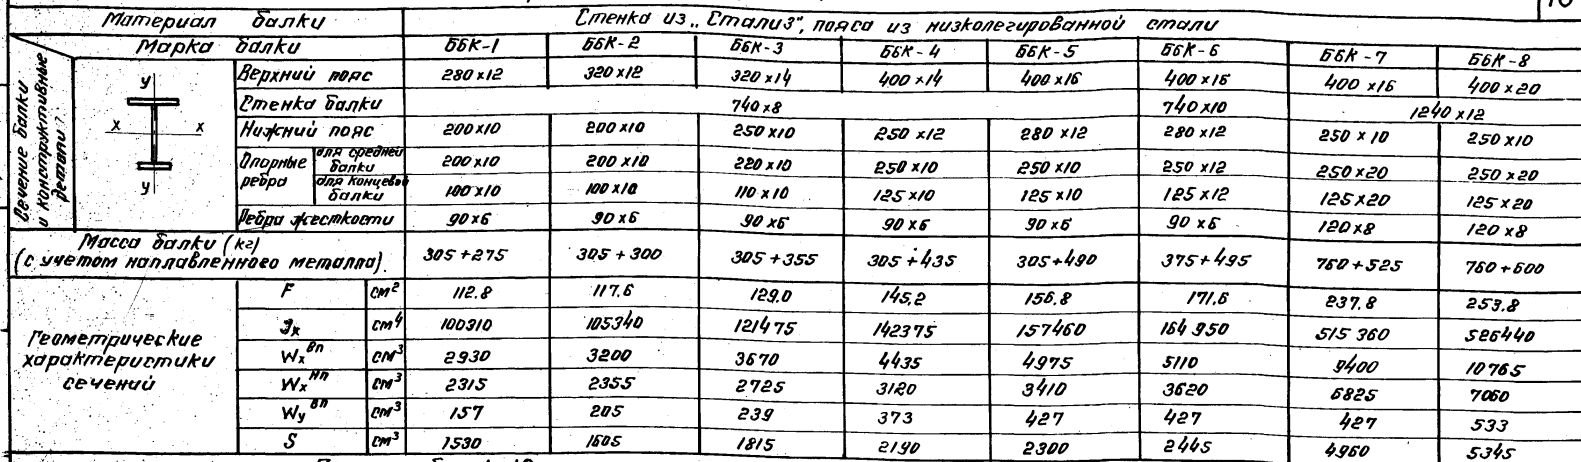 10
Материал балки | Стенка из „Стали3", пояса из низколегированной стали
Марка балки | ББК-1 | ББК-2 | ББК-3 | ББК-4 | ББК-5 | ББК-6 | ББК-7 | ББК-8
Сечение балки и конструктивные детали
y x x y
Верхний пояс | 280x12 | 320x12 | 320x14 | 400x14 | 400x16 | 400x16 | 400x16 | 400x20
Стенка балки | 740x8 | 740x10 | 1240x12
Нижний пояс | 200x10 | 200x10 | 250x10 | 250x12 | 280x12 | 280x12 | 250x10 | 250x10
Опорные ребра | для средней балки | 200x10 | 200x10 | 220x10 | 250x10 | 250x10 | 250x12 | 250x20 | 250x20
для концевой балки | 100x10 | 100x10 | 110x10 | 125x10 | 125x10 | 125x12 | 125x20 | 125x20
Ребра жесткости | 90x6 | 90x6 | 90x6 | 90x6 | 90x6 | 90x6 | 120x8 | 120x8
Масса балки (кг) (с учетом наплавленного металла). | 305+275 | 305+300 | 305+355 | 305+435 | 305+490 | 375+495 | 760+525 | 760+600
Геометрические характеристики сечений
F | см² | 112.8 | 117.6 | 129.0 | 145.2 | 156.8 | 171.6 | 237.8 | 253.8
Jx | см⁴ | 100310 | 105340 | 121475 | 142375 | 157460 | 164950 | 515360 | 526440
Wx вп | см³ | 2930 | 3200 | 3670 | 4435 | 4975 | 5110 | 9400 | 10765
Wx нп | см³ | 2315 | 2355 | 2725 | 3120 | 3410 | 3620 | 6825 | 7060
Wy вп | см³ | 157 | 205 | 239 | 373 | 427 | 427 | 427 | 533
S | см³ | 1530 | 1605 | 1815 | 2190 | 2300 | 2445 | 4960 | 5345